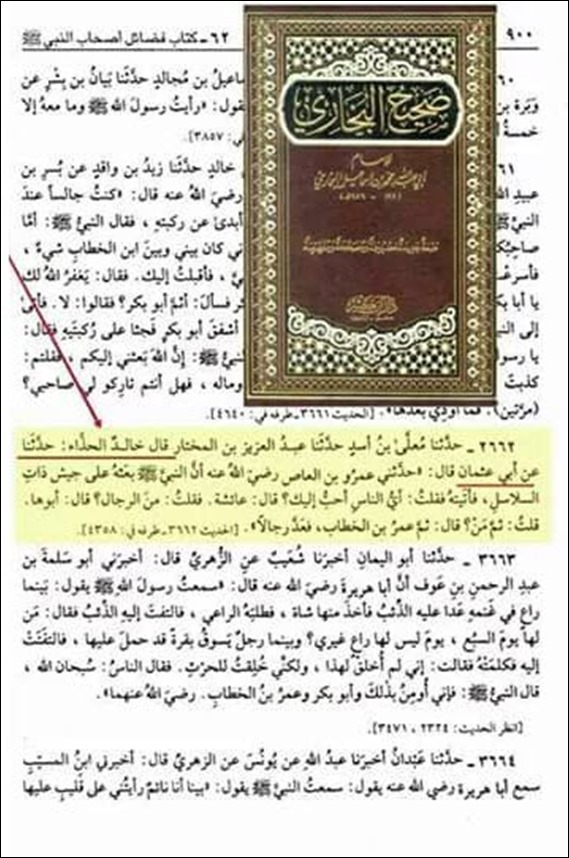 ٩٠٠
٦٢ - كتاب فضائل أصحاب النبي ﷺ
صحيح البخاري
للإمام
٦٠
ماعيلُ بن مُجالدٍ حدَّثنا بَيانُ بن بِشْرٍ عن
وَبَرة بن
يقول: «رأيتُ رسولَ اللهِ ﷺ وما معهُ إلا
خمسةُ أ
في: ٣٨٥٧].
٦١
خالدٍ حدَّثنا زيدُ بن واقدٍ عن بُسرِ بن
عبيدِ الله
رضيَ اللهُ عنه قال: «كنتُ جالساً عندَ
النبيِّ
أبدىٰ عن ركبتِهِ ، فقال النبيُّ ﷺ: أمَّا
صاحبُك
ي كان بيني وبينَ ابن الخطابِ شيءٌ ،
فأسرعْـ
يَّ ، فأقبلتُ إليك. فقال: يَغفرُ اللهُ لك
يا أبا بك
كر فسألَ: أثمَّ أبو بكر؟ فقالوا: لا. فأتىٰ
إلى النب
أشفقَ أبو بكرٍ فجثا على رُكبتَيهِ فقال:
يا رسولَ
نبيُّ ﷺ: إنَّ اللهَ بعثني إليكم ، فقلتم:
كذبتَ
وماله ، فهل أنتم تارِكو لي صاحبي؟
(مرَّتين). فما أوذِيَ بعدَها». [الحديث ٣٦٦١ ـ طرفه في: ٤٦٤٠].
٣٦٦٢ ـ حدَّثنا مُعلَّىٰ بنُ أسدٍ حدَّثنا عبدُ العزيزِ بن المختار قال خالدٌ الحذَّاء: حدَّثنا
عن أبي عثمان قال: «حدَّثني عمرُو بن العاص رضيَ اللهُ عنه أنَّ النبيَّ ﷺ بعثَهُ على جيش ذاتِ
السلاسل ، فأتيتهُ فقلتُ: أيُّ الناسِ أحبُّ إليك؟ قال: عائشة. فقلتُ: منَ الرجال؟ قال: أبوها.
قلتُ: ثمَّ مَنْ؟ قال: ثمَّ عمرُ بن الخطاب، فعدَّ رجالاً». [الحديث ٣٦٦٢ ـ طرفه في: ٤٣٥٨].
٣٦٦٣ ـ حدَّثنا أبو اليمانِ أخبرَنا شُعَيبٌ عن الزُّهريِّ قال: أخبرَني أبو سَلمةَ بن
عبدِ الرحمنِ بن عَوفٍ أنَّ أبا هريرةَ رضيَ الله عنه قال: «سمعتُ رسولَ اللهِ ﷺ يقول: بَينما
راعٍ في غنمهِ عَدا عليه الذِّئبُ فأخذَ منها شاة ، فطلبَهُ الراعي ، فالتفتَ إليهِ الذِّئبُ فقال: مَن
لها يومَ السبُع ، يومَ ليس لها راعٍ غيري؟ وبينما رجلٌ يَسوقُ بقرةً قد حملَ عليها ، فالتفَتَتْ
إليه فكلمَتْهُ فقالت: إني لم أُخلَقْ لهذا ، ولكنِّي خُلِقتُ للحرْثِ. فقال الناسُ: سبحان الله ،
قال النبيُّ ﷺ: فإني أُومِنُ بذلكَ وأبو بكرٍ وعمرُ بنُ الخطاب. رضيَ اللهُ عنهما».
[انظر الحديث: ٢٣٢٤ ، ٣٤٧١].
٣٦٦٤ ـ حدَّثنا عَبْدانُ أخبرَنا عبدُ اللهِ عن يُونُسَ عن الزهريِّ قال: أخبرني ابنُ المسيَّبِ
سمع أبا هريرةَ رضي الله عنه يقول: سمعتُ النبيَّ ﷺ يقول: «بينا أنا نائمٌ رأيتُني على قَليبٍ عليها